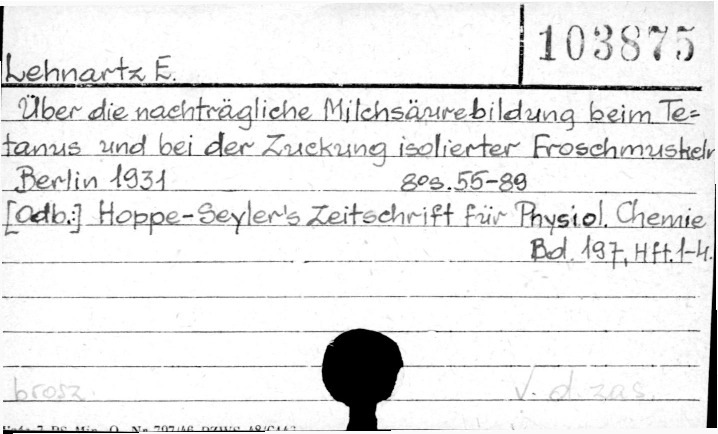 103875
Lehnartz E.
Über die nachträgliche Milchsäurebildung beim Te=
tanus und bei der Zuckung isolierter Froschmuskeln
Berlin 1931 8os. 55-89
[Odb.:] Hoppe-Seyler's Zeitschrift für Physiol. Chemie
Bd. 197, Hft. 1-4.
brosz. v. d. zas.